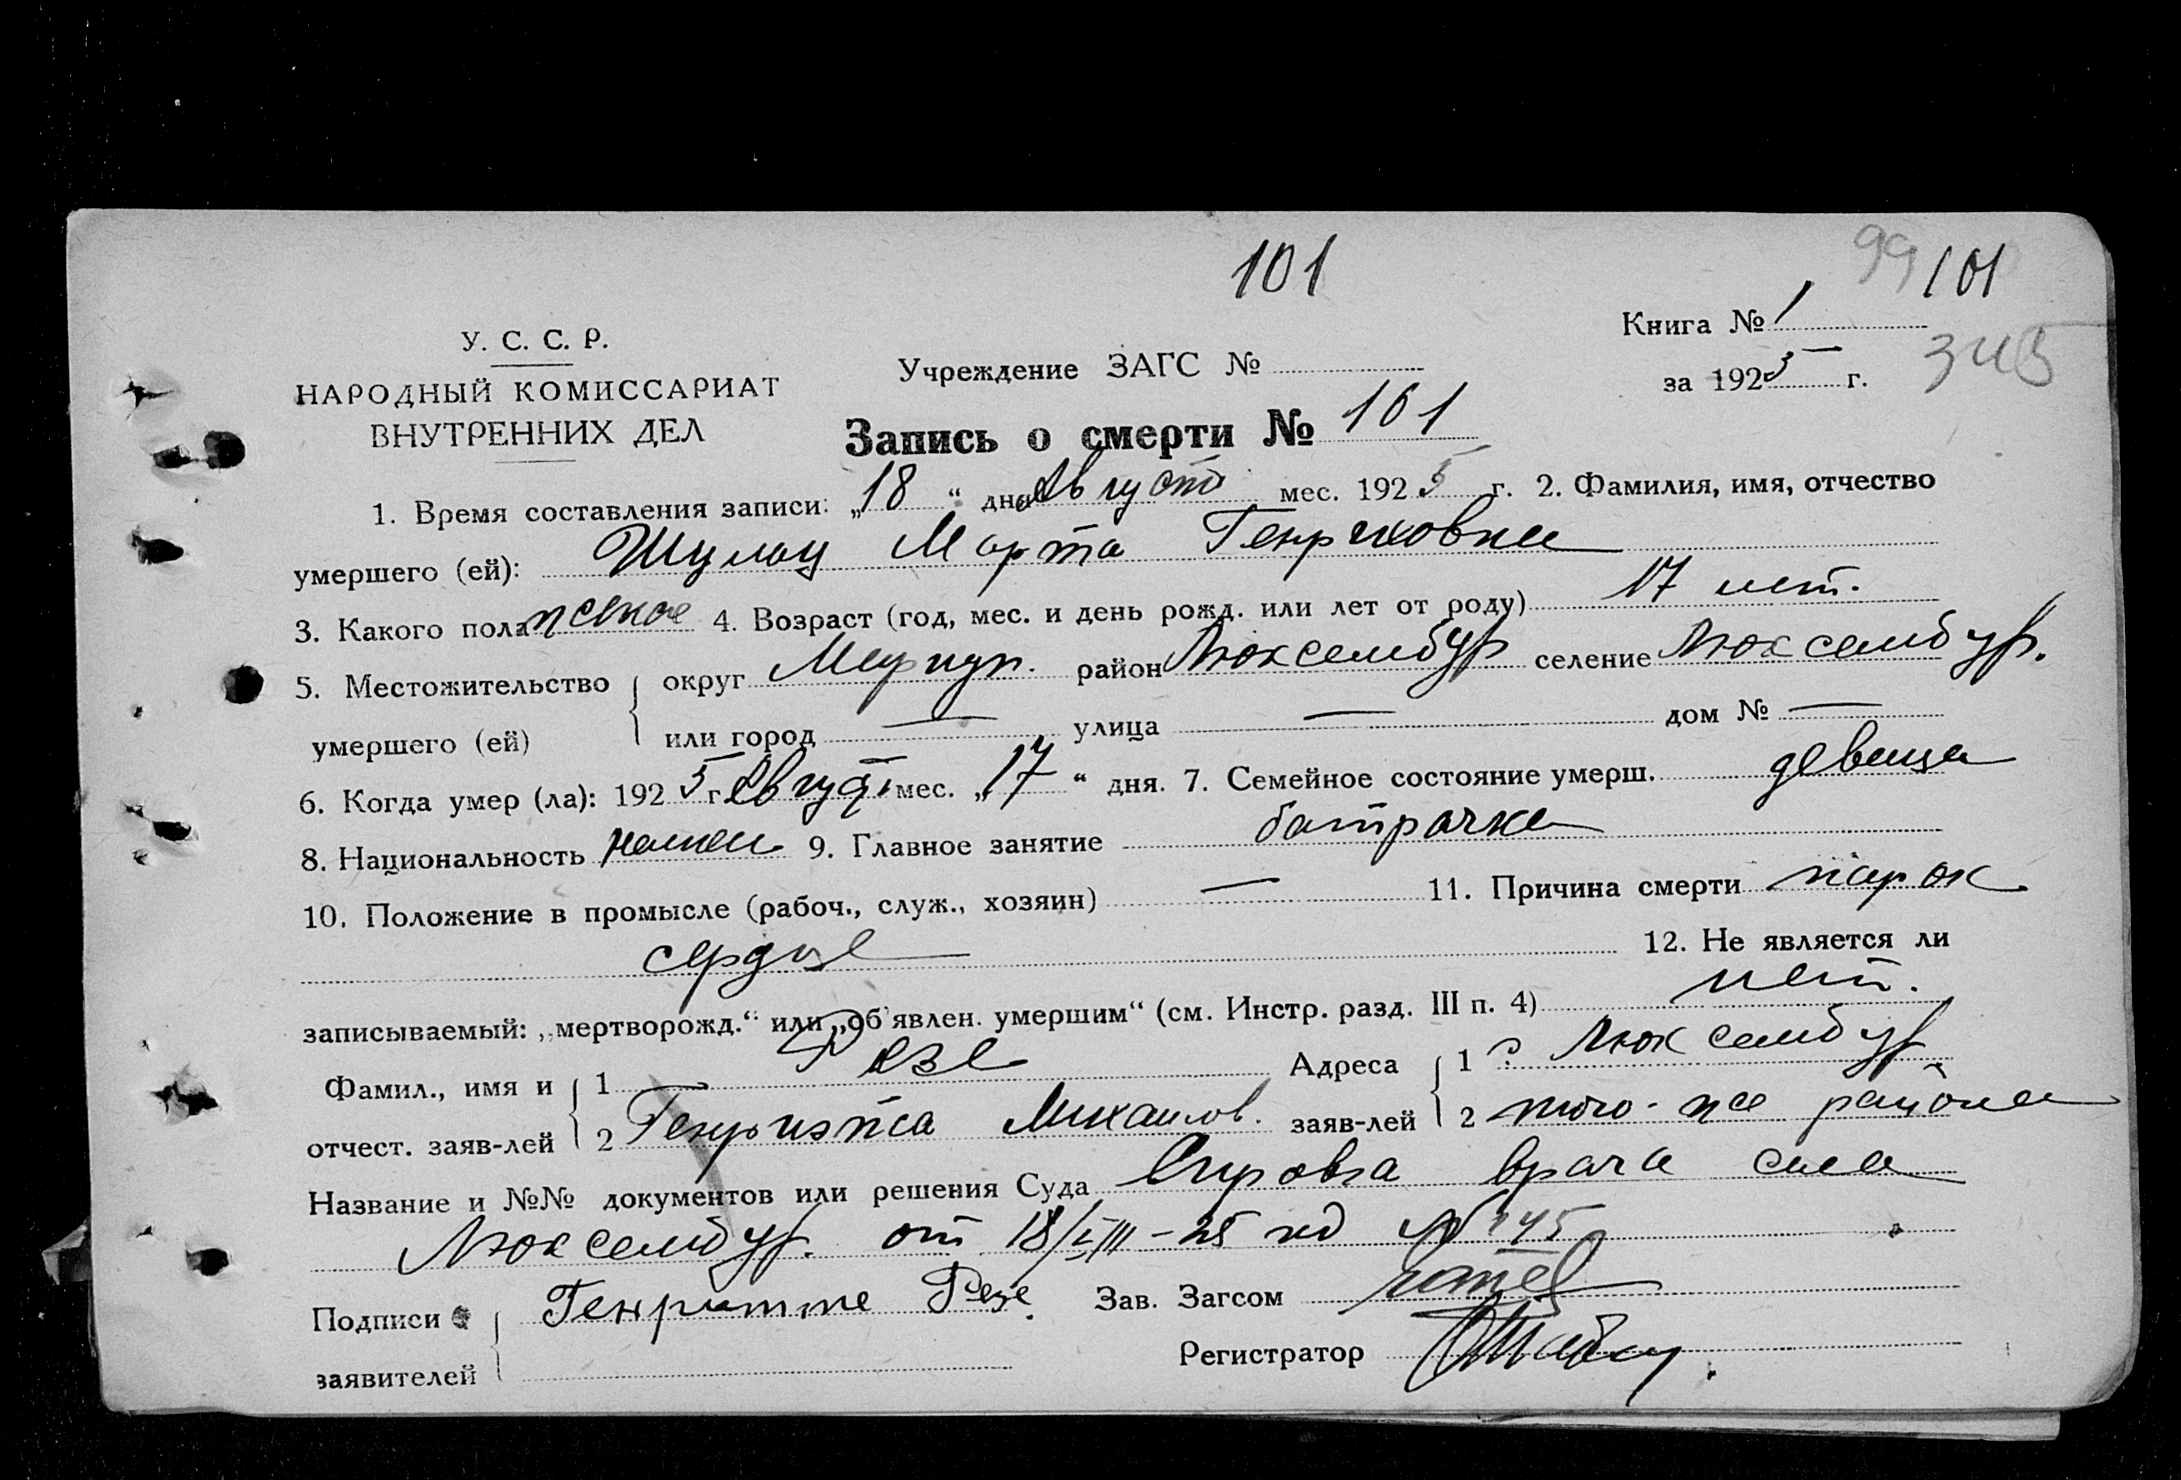 101
99 101
Книга № 1
345
У. С. С. Р.
НАРОДНЫЙ КОМИССАРИАТ
ВНУТРЕННИХ ДЕЛ
Учреждение ЗАГС №
за 1925 г.
Запись о смерти № 101
1. Время составления записи: „18“ дня августа мес. 1925 г. 2. Фамилия, имя, отчество
умершего (ей): Шульц Марта Генриховна
3. Какого пола женское 4. Возраст (год, мес. и день рожд. или лет от роду) 17 лет.
5. Местожительство округ Мариуп. район Люксембург селение Люксембург.
умершего (ей) или город — улица — дом № —
6. Когда умер (ла): 1925 г. август мес. „17“ дня. 7. Семейное состояние умерш. девица
8. Национальность немец 9. Главное занятие батрачка
10. Положение в промысле (рабоч., служ., хозяин) — 11. Причина смерти порок
сердца 12. Не является ли
записываемый: „мертворожд.“ или „об'явлен. умершим“ (см. Инстр. разд. III п. 4) нет.
Фамил., имя и 1 Резе Адреса 1 с. Люксембург
отчест. заяв-лей 2 Генриэтта Михайлов. заяв-лей 2 того-же района
Название и №№ документов или решения Суда Справка врача села
Люксембург. от 18/VIII-25 под № 145
Подписи Генриетте Резе Зав. Загсом
заявителей Регистратор